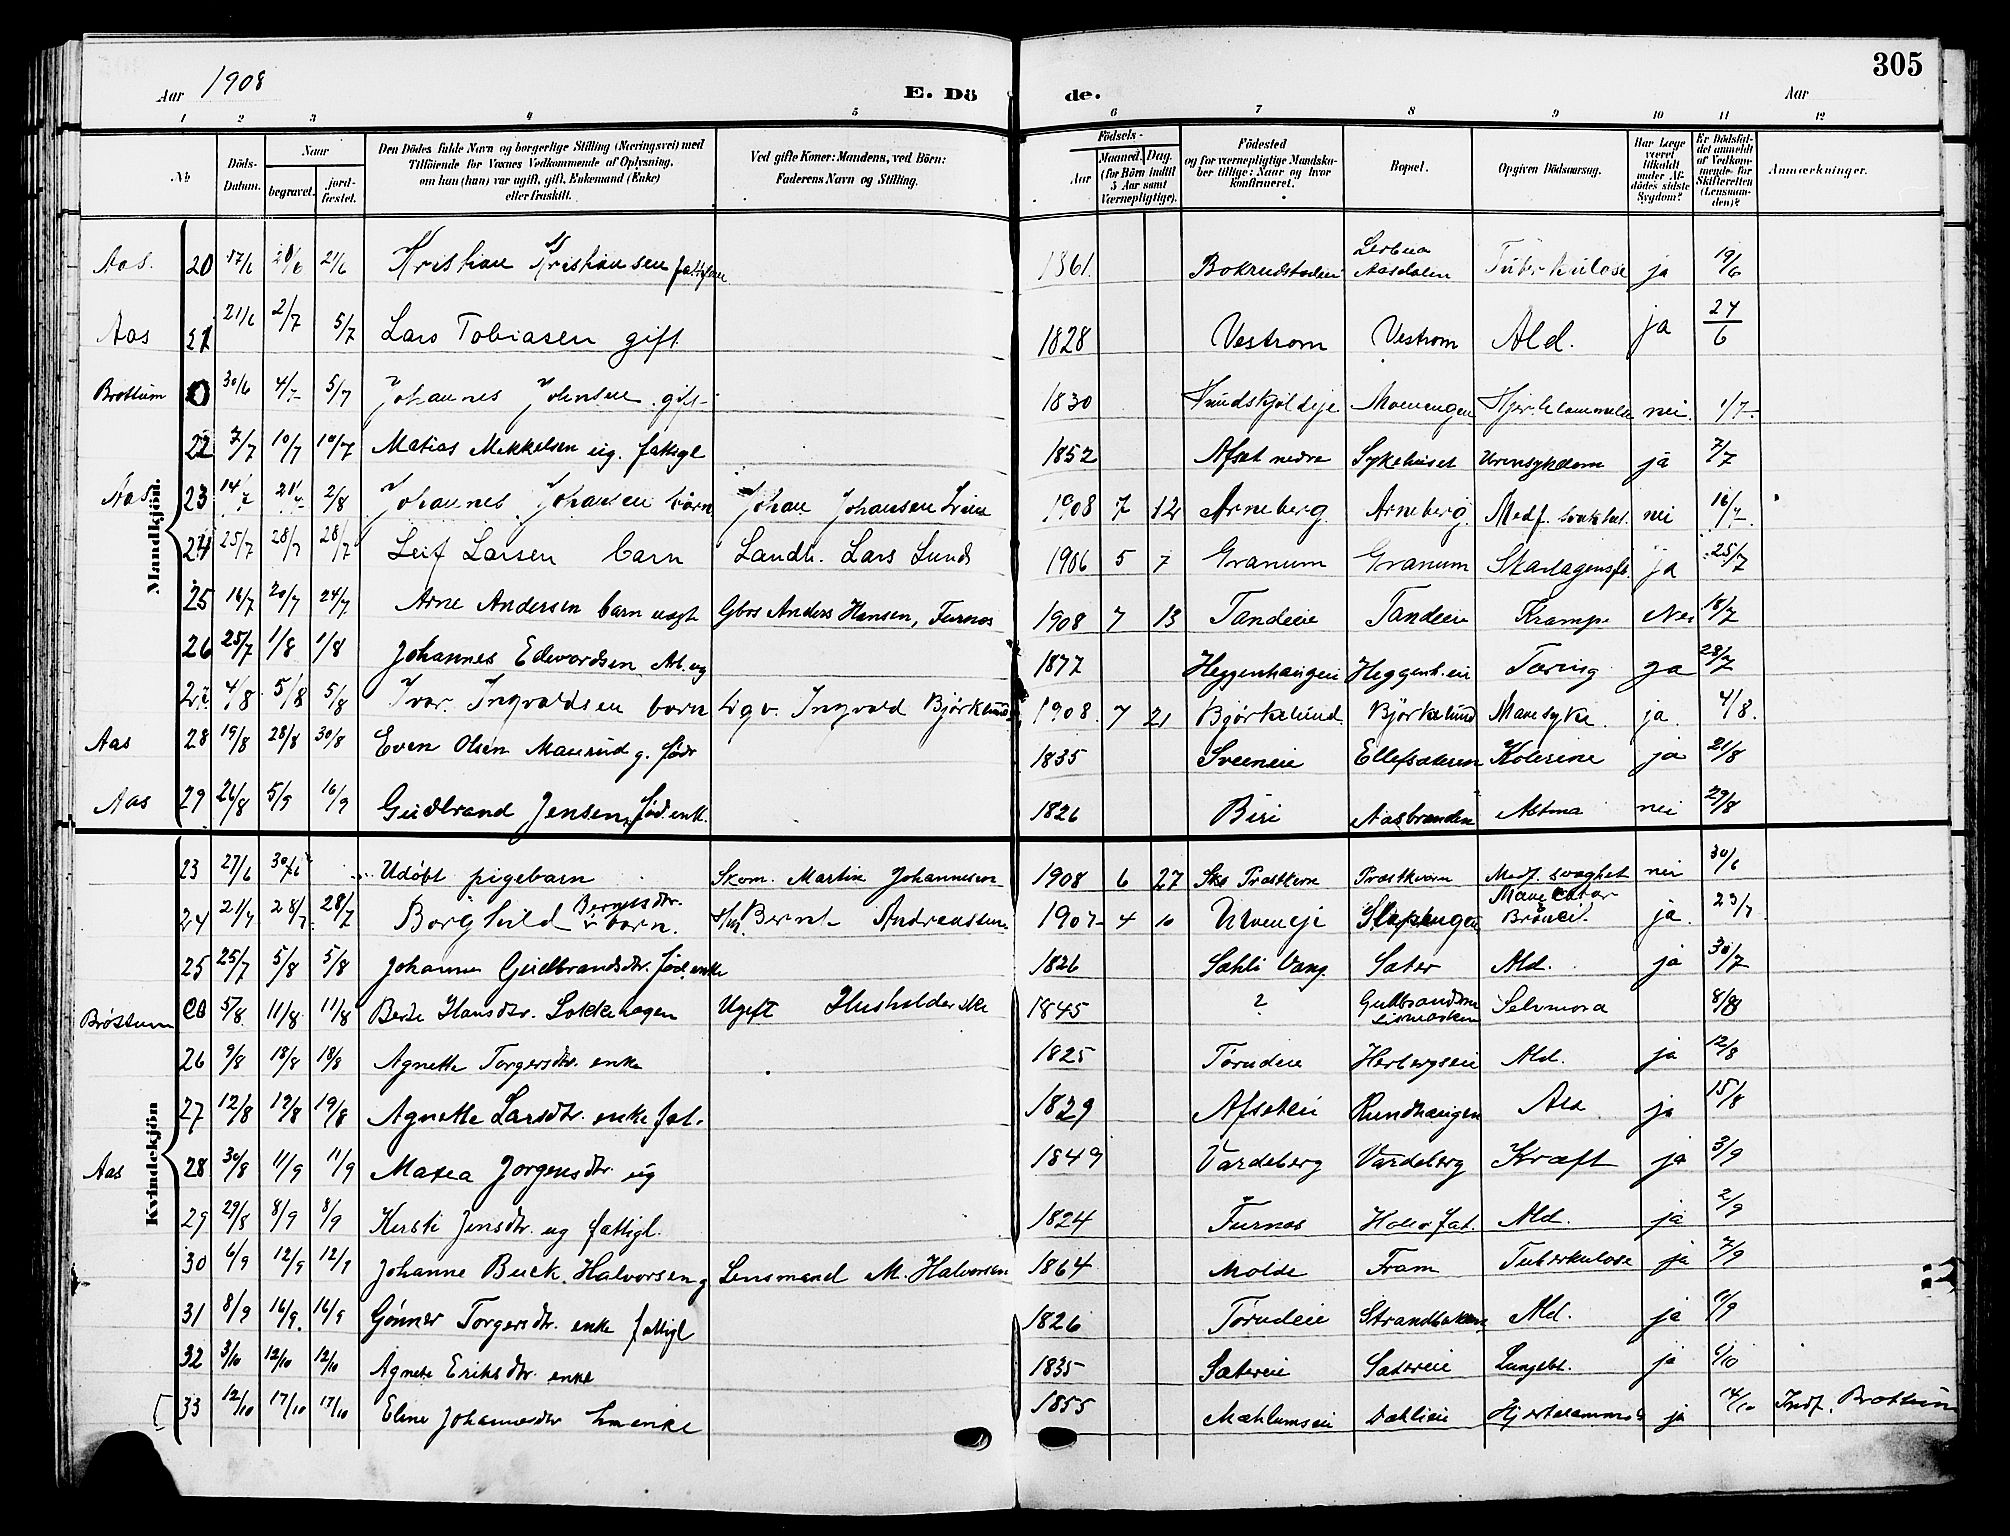 305
Aar 1908
E. Dö de.
Aar
1 2 3 4 5 6 7 8 9 10 11 12
No
Döds-Datum.
Naar begravet. jordfæstet.
Den Dödes fulde Navn og borgerlige Stilling (Næringsvei) med Tilföiende for Voxnes Vedkommende af Oplysning, om han (hun) var ugift, gift, Enkemand (Enke) eller fraskilt.
Ved gifte Koner: Mandens, ved Börn: Faderens Navn og Stilling.
Födsels- Aar Maaned. Dag. (for Börn indtil 5 Aar samt Værnepligtige).
Födested og for værnepligtige Mandskaber tillige: Naar og hvor konfirmeret.
Bopæl.
Opgiven Dödsaarsag.
Har Læge været tilkaldt under Afdödes sidste Sygdom?
Er Dödsfaldet anmeldt af Vedkommende for Skifteretten (Lensmanden)?
Anmærkninger.
Mandkjön.
Aas. 20 17/6 20/6 21/6 Kristian Kristiansen 1861. Aasdalen Tuberkulose ja 19/6
Aas 21 21/6 2/7 5/7 Lars Tobiasen gift 1828 Vestrom Vestrom Ald. ja 24/6
Brøttum 30/6 4/7 5/7 Johannes Johnsen gift 1830 Moenengen nei. 1/7
22 7/7 10/7 10/7 Matias Mikkelsen ug. fattigl 1852 Afset nedre Sykehuset Urinsykdom ja 7/7
Aas 23 14/7 21/7 2/8 Johannes Johansen barn Johan Johansen 1908 7 12 Arneberg Arneberg. Medf. nei 16/7
24 25/7 28/7 28/7 Leif Larsen barn Landh. Lars Lund 1906 5 7 Granum Granum Skarlagensf. ja 25/7
25 16/7 20/7 24/7 Arne Andersen barn uægt Gbrs Anders Hansen, Furnes 1908 7 13 Tandeie Tandeie Krampe Nei 18/7
26 25/7 1/8 1/8 Johannes Edvardsen Arb. ug 1877 Heggenhaugen Heggenh.eie Tæring ja 28/7
27 4/8 5/8 5/8 Ivar Ingvaldsen barn Ligv. Ingvald Bjørklund 1908. 7 21 Bjørkelund Bjørkelund Mavesyke. ja. 4/8.
Aas 28 19/8 28/8 30/8 Even Olsen Maserud g. født 1835 Sveeneie Ellefsæteren Kolerine ja 21/8
Aas 29 26/8 5/9 16/9 Gudbrand Jensen, fød. enk. 1826 Biri Aasbranden Astma nei 29/8
Kvindekjön
23 27/6 30/6 Udøbt pigebarn Skom. Martin Johannesen 1908 6 27 Præstkvern Medf. svaghet nei 30/6
24 21/7 28/7 28/7 Borghild Berntsdtr. barn. Bernt Andreassen 1907 4 10 Ulveneje Slaphaugen Mavecatar ja. 23/7
25 25/7 5/8 5/8 Johanne Gudbrandsdtr. fød. enke 1826 Sahli Vang Sæter Ald. ja 30/7
Brøttum 5/8 11/8 11/8 Berte Hansdtr. Løkkehagen Ugift Husholderske 1845 ? Selvmord
26 9/8 18/8 18/8 Agnette Torgersdtr. enke 1825 Tørudeie Herbergseie Ald. ja 12/8
27 12/8 19/8 19/8 Agnette Larsdtr. enke fat. 1829 Afseteie Rundhaugen Ald ja 15/8
Aas 28 30/8 11/9 11/9 Matea Jørgensdtr. ug 1849 Vardeberg Vardeberg Kræft ja 3/9
29 29/8 8/9 8/9 Kersti Jensdtr. ug fattigl. 1824 Furnes Ald. ja 2/9
30 6/9 12/9 12/9 Johanne Buck Halvorsen g Lensmand M. Halvorsen 1864 Molde Fram Tuberkulose ja 7/9
31 8/9 16/9. 16/9 Gønner Torgersdtr. enke fattigl 1826 Tørudeie Strandbakken Ald. ja 11/9
32 3/10 12/10 12/10 Agnete Eriksdtr. enke 1835 Sætereie Sætereie Lungebt. ja 6/10
33 12/10 17/10 17/10 Eline Johannesdtr enke 1855 Mæhlumseie Dahlieie ja 14/10 Indf. Brøttum